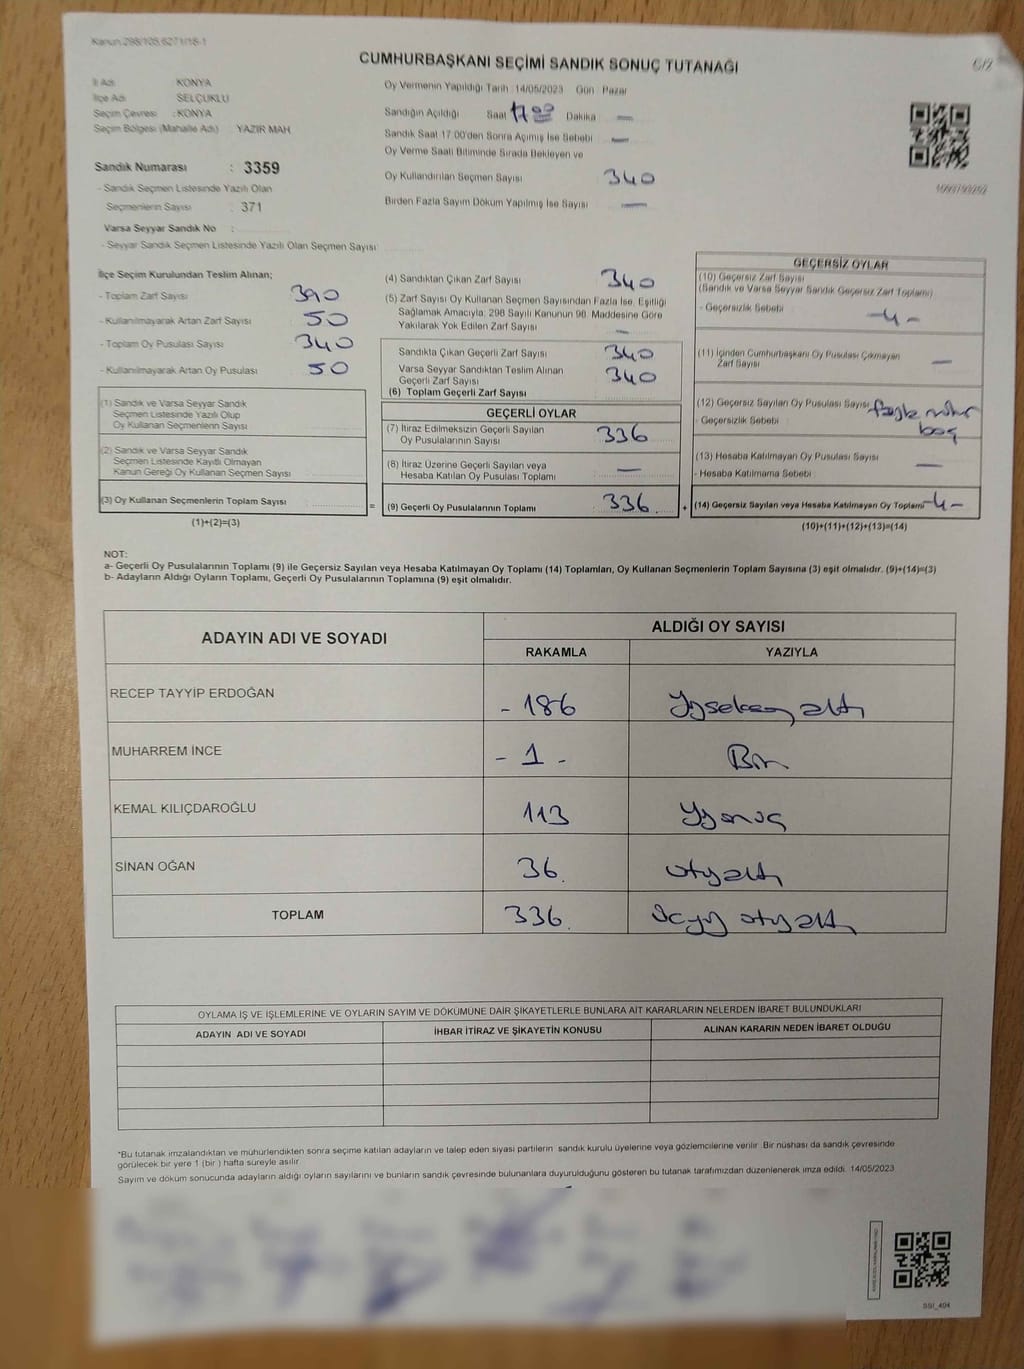 Kanun:298/105,6271/18-1
CUMHURBAŞKANI SEÇİMİ SANDIK SONUÇ TUTANAĞI
İl Adı KONYA
İlçe Adı SELÇUKLU
Seçim Çevresi : KONYA
Seçim Bölgesi (Mahalle Adı) YAZIR MAH
Sandık Numarası : 3359
- Sandık Seçmen Listesinde Yazılı Olan
Seçmenlerin Sayısı : 371
Varsa Seyyar Sandık No :
- Seyyar Sandık Seçmen Listesinde Yazılı Olan Seçmen Sayısı
Oy Vermenin Yapıldığı Tarih : 14/05/2023 Gün : Pazar
Sandığın Açıldığı Saat 17 00 Dakika —
Sandık Saat 17:00'den Sonra Açımış İse Sebebi —
Oy Verme Saati Bitiminde Sırada Bekleyen ve
Oy Kullandırılan Seçmen Sayısı 340
Birden Fazla Sayım Döküm Yapılmış İse Sayısı —
İlçe Seçim Kurulundan Teslim Alınan;
- Toplam Zarf Sayısı 390
- Kullanılmayarak Artan Zarf Sayısı 50
- Toplam Oy Pusulası Sayısı 340
- Kullanılmayarak Artan Oy Pusulası 50
(1) Sandık ve Varsa Seyyar Sandık
Seçmen Listesinde Yazılı Olup
Oy Kullanan Seçmenlerin Sayısı
(2) Sandık ve Varsa Seyyar Sandık
Seçmen Listesinde Kayıtlı Olmayan
Kanun Gereği Oy Kullanan Seçmen Sayısı
(3) Oy Kullanan Seçmenlerin Toplam Sayısı =
(1)+(2)=(3)
(4) Sandıktan Çıkan Zarf Sayısı 340
(5) Zarf Sayısı Oy Kullanan Seçmen Sayısından Fazla İse, Eşitliği
Sağlamak Amacıyla; 298 Sayılı Kanunun 98. Maddesine Göre
Yakılarak Yok Edilen Zarf Sayısı —
Sandıkta Çıkan Geçerli Zarf Sayısı 340
Varsa Seyyar Sandıktan Teslim Alınan 340
Geçerli Zarf Sayısı
(6) Toplam Geçerli Zarf Sayısı
GEÇERLİ OYLAR
(7) İtiraz Edilmeksizin Geçerli Sayılan
Oy Pusulalarının Sayısı 336
(8) İtiraz Üzerine Geçerli Sayılan veya
Hesaba Katılan Oy Pusulası Toplamı —
(9) Geçerli Oy Pusulalarının Toplamı 336 +
GEÇERSİZ OYLAR
(10) Geçersiz Zarf Sayısı
(Sandık ve Varsa Seyyar Sandık Geçersiz Zarf Toplamı)
- Geçersizlik Sebebi -4-
(11) İçinden Cumhurbaşkanı Oy Pusulası Çıkmayan
Zarf Sayısı —
(12) Geçersiz Sayılan Oy Pusulası Sayısı
- Geçersizlik Sebebi boş
(13) Hesaba Katılmayan Oy Pusulası Sayısı —
- Hesaba Katılmama Sebebi
(14) Geçersiz Sayılan veya Hesaba Katılmayan Oy Toplamı -4-
(10)+(11)+(12)+(13)=(14)
NOT:
a- Geçerli Oy Pusulalarının Toplamı (9) ile Geçersiz Sayılan veya Hesaba Katılmayan Oy Toplamı (14) Toplamları, Oy Kullanan Seçmenlerin Toplam Sayısına (3) eşit olmalıdır. (9)+(14)=(3)
b- Adayların Aldığı Oyların Toplamı, Geçerli Oy Pusulalarının Toplamına (9) eşit olmalıdır.
ADAYIN ADI VE SOYADI
ALDIĞI OY SAYISI
RAKAMLA YAZIYLA
RECEP TAYYİP ERDOĞAN - 186 Yüzseksen altı
MUHARREM İNCE - 1 - Bir
KEMAL KILIÇDAROĞLU 113 Yüzonüç
SİNAN OĞAN 36. otuzaltı
TOPLAM 336. üçyüz otuzaltı
OYLAMA İŞ VE İŞLEMLERİNE VE OYLARIN SAYIM VE DÖKÜMÜNE DAİR ŞİKAYETLERLE BUNLARA AİT KARARLARIN NELERDEN İBARET BULUNDUKLARI
ADAYIN ADI VE SOYADI İHBAR İTİRAZ VE ŞİKAYETİN KONUSU ALINAN KARARIN NEDEN İBARET OLDUĞU
*Bu tutanak imzalandıktan ve mühürlendikten sonra seçime katılan adayların ve talep eden siyasi partilerin sandık kurulu üyelerine veya gözlemcilerine verilir. Bir nüshası da sandık çevresinde
görülecek bir yere 1 (bir ) hafta süreyle asılır.
Sayım ve döküm sonucunda adayların aldığı oyların sayılarını ve bunların sandık çevresinde bulunanlara duyurulduğunu gösteren bu tutanak tarafımızdan düzenlenerek imza edildi. 14/05/2023
SSI_404